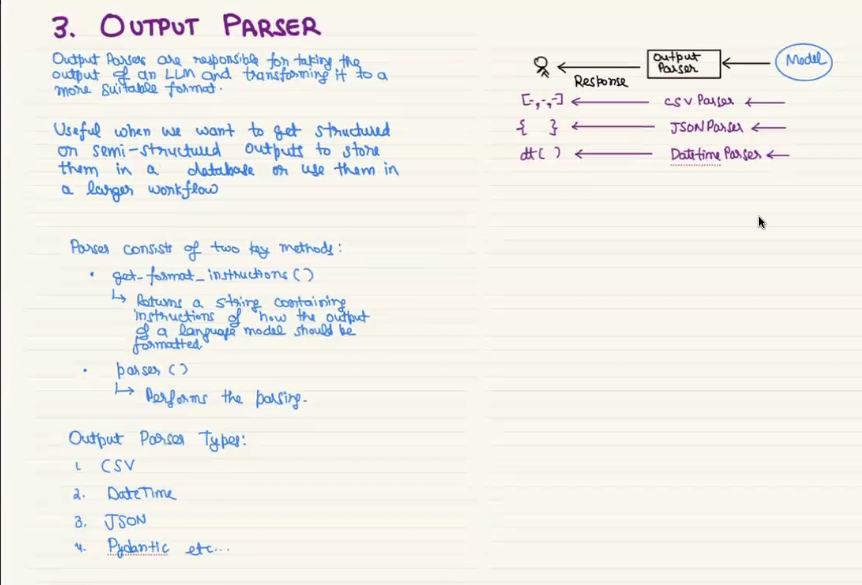 3. OUTPUT PARSER
Output Parsers are responsible for taking the
output of an LLM and transforming it to a
more suitable format.
Useful when we want to get structured
or semi-structured outputs to store
them in a database or use them in
a larger workflow
Parser consists of two key methods:
• get_format_instructions()
↳ Returns a string containing
instructions of how the output
of a language model should be
formatted.
• parser()
↳ Performs the parsing.
Output Parser Types:
1. CSV
2. DateTime
3. JSON
4. Pydantic etc...
Response ← Output Parser ← Model
[-,-,-] ← CSV Parser ←
{ } ← JSON Parser ←
dt( ) ← Datetime Parser ←